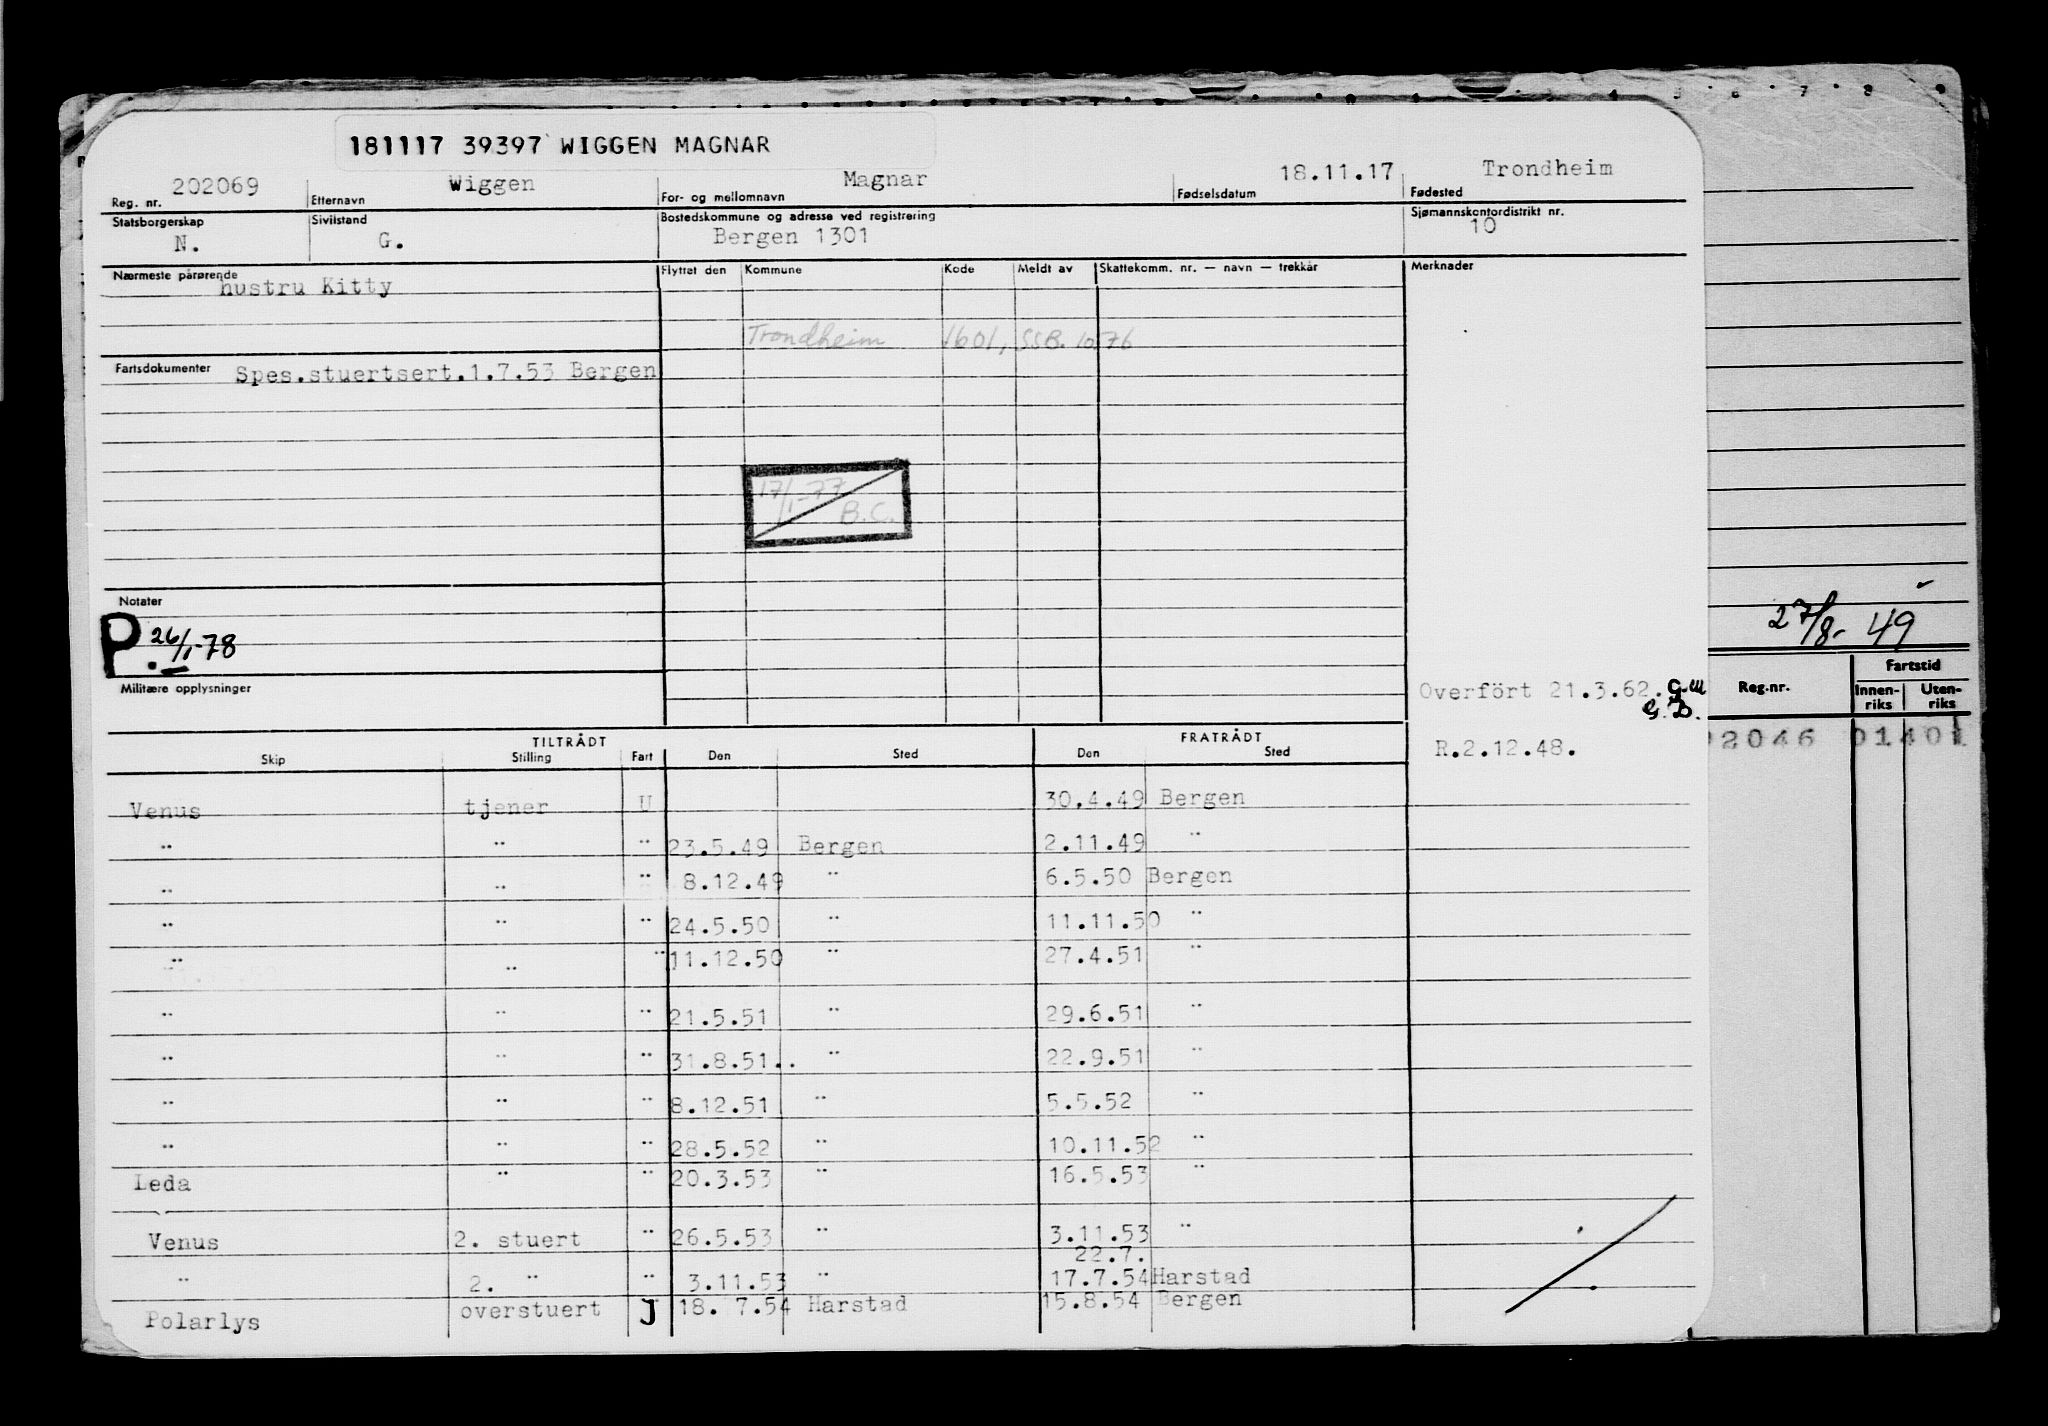 181117 39397 WIGGEN MAGNAR
202069 Wiggen Magnar 18.11.17 Trondheim
Reg. nr. Etternavn For- og mellomnavn Fødselsdatum Fødested
Statsborgerskap Sivilstand Bostedskommune og adresse ved registrering Sjømannskontordistrikt nr.
N. G. Bergen 1301 10
Nærmeste pårørende Flyttet den Kommune Kode Meldt av Skattekomm. nr. — navn — trekkår Merknader
hustru Kitty
Trondheim 1601, SSB. 10.76
Fartsdokumenter Spes.stuertsert.1.7.53 Bergen
17/1-77
B.C.
Notater
P. 26/1-78
27/8- 49
Militære opplysninger
Overfört 21.3.62.
G.D.
Reg.nr. Fartstid
Innen-riks Uten-riks
02046 01401
TILTRÅDT FRATRÅDT
Skip Stilling Fart Den Sted Den Sted
R.2.12.48.
Venus tjener U 30.4.49 Bergen
" " " 23.5.49 Bergen 2.11.49 "
" " " 8.12.49 " 6.5.50 Bergen
" " " 24.5.50 " 11.11.50 "
" " " 11.12.50 " 27.4.51 "
" " " 21.5.51 " 29.6.51 "
" " " 31.8.51.. " 22.9.51 "
" " " 8.12.51 " 5.5.52 "
" " " 28.5.52 " 10.11.52 "
Leda " " 20.3.53 " 16.5.53 "
Venus 2. stuert " 26.5.53 " 3.11.53 "
22.7.
" 2. " " 3.11.53 " 17.7.54 Harstad
Polarlys overstuert J 18. 7.54 Harstad 15.8.54 Bergen